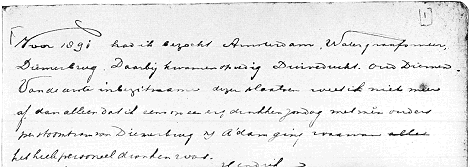 [1]
[Voor 1891 had ik bezocht Amsterdam, Watergraafsmeer,
Diemerbrug. Daarbij kwamen Duivendrecht. Oud Diemen.
Van de eerste inbezitname dezer plaatsen weet ik niet meer
af dan alleen dat ik eens op een erg dronken zondag met mijn ouders
per stoomtram van Diemerbrug n/ A'dam ging, waarvan alles
het heele personeel dronken was.